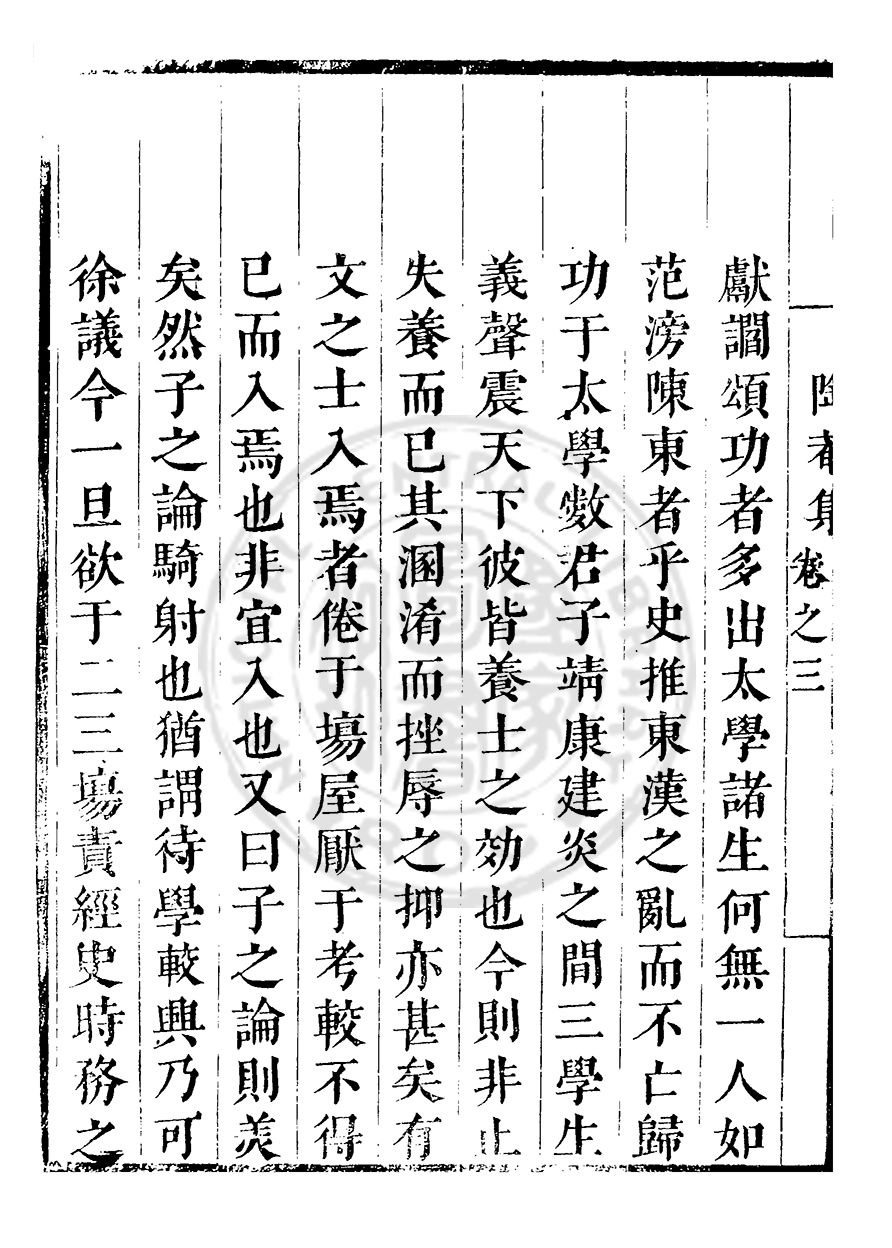 陶菴集 卷之三
獻讇頌功者多出太學諸生何無一人如
范滂陳東者乎史推東漢之亂而不亡歸
功于太學數君子靖康建炎之間三學生
義聲震天下彼皆養士之効也今則非止
失養而已其溷淆而挫辱之抑亦甚矣有
文之士入焉者倦于塲屋厭于考較不得
已而入焉也非宜入也又曰子之論則美
矣然子之論騎射也猶謂待學較興乃可
徐議今一旦欲于二三塲責經史時務之